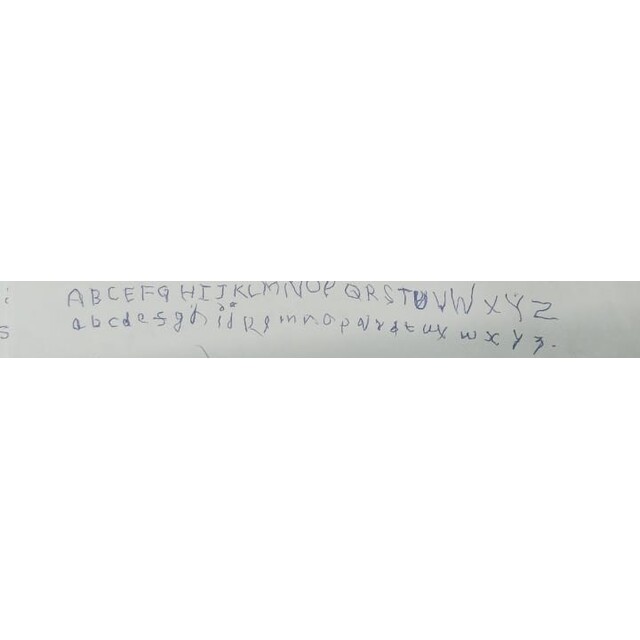 A B C E F G H I J K L M N O P Q R S T U V W X Y Z
a b c d e f g h i j k l m n o p q r s t u v w x y z.